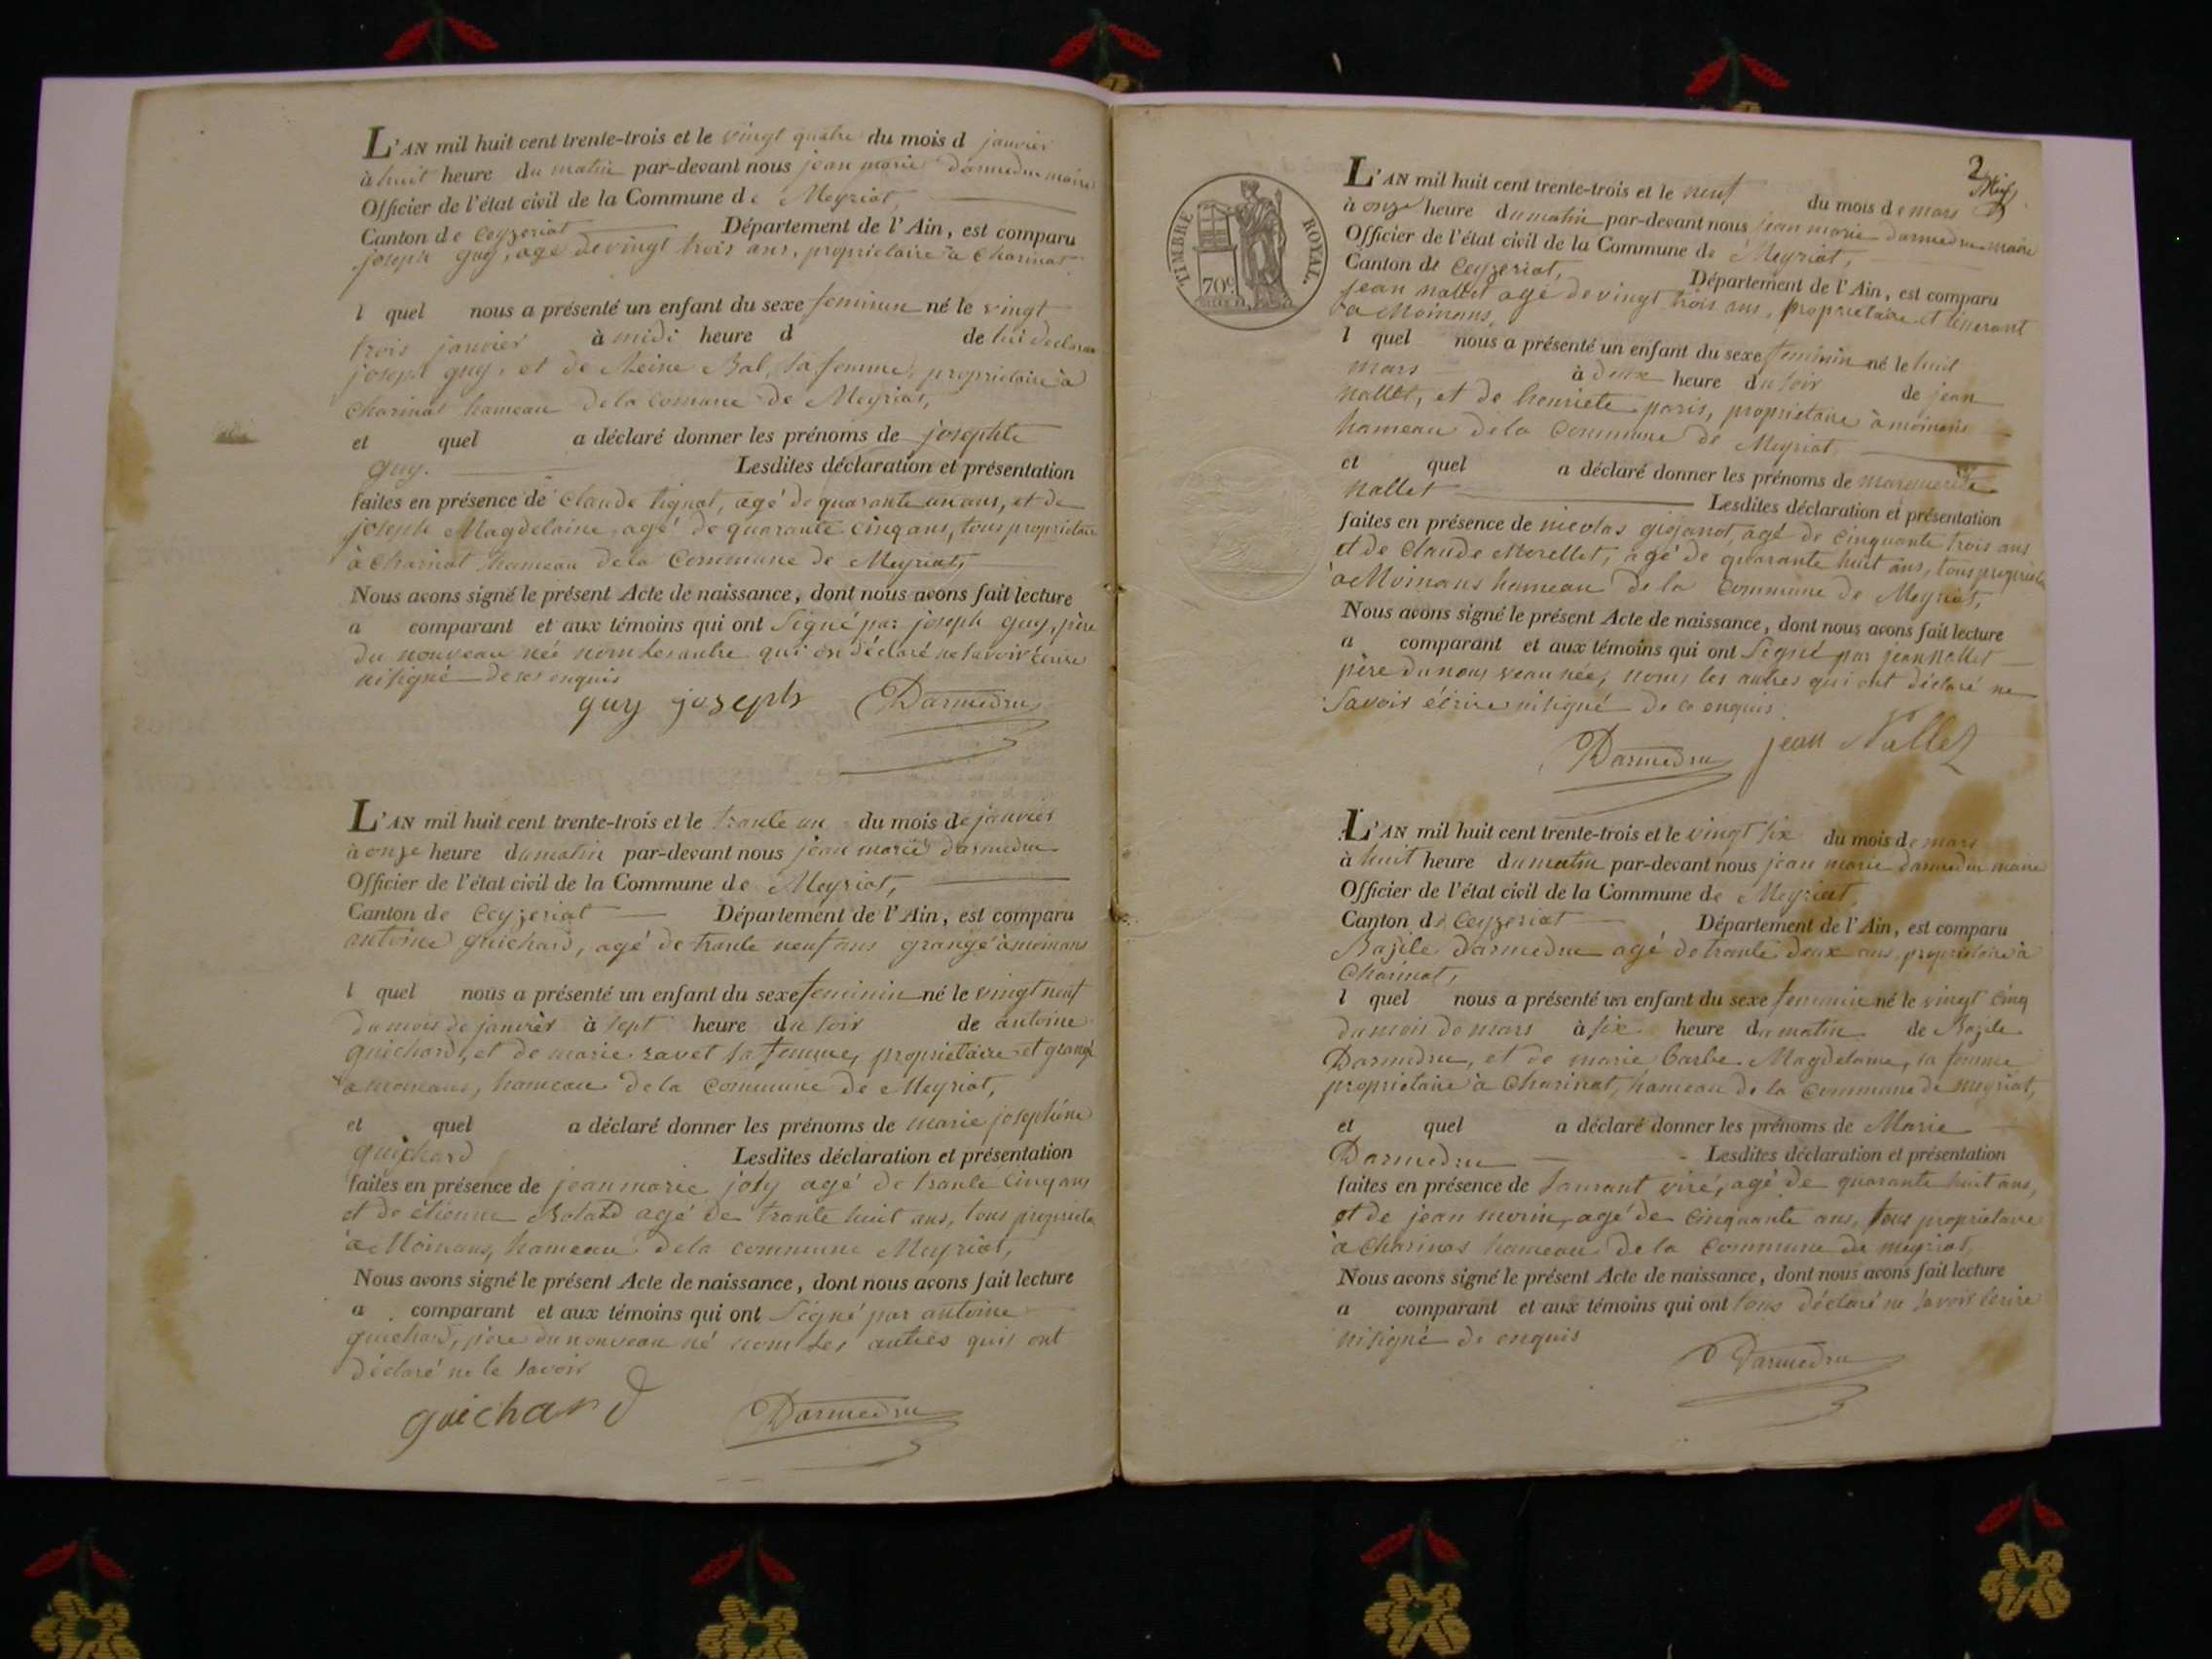 L'AN mil huit cent trente-trois et le vingt quatre du mois d janvier
à huit heure du matin par-devant nous jean marie Darmedru maire
Officier de l'état civil de la Commune de Meyriat,
Canton de Ceyzeriat Département de l'Ain, est comparu
joseph guy, agé de vingt trois ans, proprietaire à Charinat
l quel nous a présenté un enfant du sexe feminin né le vingt
trois janvier à midi heure d de lui declarant
joseph guy, et de Reine Bal, sa femme, proprietaire à
Charinat hameau de la Comune de Meyriat,
et quel a déclaré donner les prénoms de josephte
guy. Lesdites déclaration et présentation
faites en présence de Claude tignat, agé de quarante un ans, et de
joseph Magdelaine agé de quarante cinq ans, tous proprietaire
à Charinat hameau de la Commune de Meyriat,
Nous avons signé le présent Acte de naissance, dont nous avons fait lecture
a comparant et aux témoins qui ont Signé par joseph guy, père
du nouveau née non les autre qui on déclaré ne savoir écrire
ni signé de ces enquis
guy joseph Darmedru
L'AN mil huit cent trente-trois et le trante un du mois de janvier
à onze heure du matin par-devant nous jean marie darmedru
Officier de l'état civil de la Commune de Meyriat,
Canton de Ceyzeriat Département de l'Ain, est comparu
antoine guichard, agé de trante neuf ans grangé à moinans
l quel nous a présenté un enfant du sexe feminin né le vingt neuf
du mois de janvier à sept heure du soir de antoine
guichard, et de marie ravet sa femme, proprietaire et grangé
a moinans, hameau de la Commune de Meyriat,
et quel a déclaré donner les prénoms de marie josephine
guichard Lesdites déclaration et présentation
faites en présence de jean marie joly agé de trante cinq ans
et de etienne Bolard agé de trante huit ans, tous proprieta
à Moinans, hameau de la commune Meyriat,
Nous avons signé le présent Acte de naissance, dont nous avons fait lecture
a comparant et aux témoins qui ont Signé par antoine
guichard, père du nouveau né non les autres quis ont
déclaré ne le savoir
guichard Darmedru
2
TIMBRE ROYAL.
70c
L'AN mil huit cent trente-trois et le neuf du mois de mars
à onze heure du matin par-devant nous jean marie darmedru maire
Officier de l'état civil de la Commune de Meyriat,
Canton de Ceyzeriat, Département de l'Ain, est comparu
jean nallet agé de vingt trois ans, proprietaire et tinerant
a Moinans,
l quel nous a présenté un enfant du sexe feminin né le huit
mars à deux heure du soir de jean
nallet, et de henriete paris, proprietaire à moinans
hameau de la Commune de Meyriat
et quel a déclaré donner les prénoms de marguerite
nallet Lesdites déclaration et présentation
faites en présence de nicolas gojanot, agé de cinquante trois ans
et de Claude Morellet, agé de quarante huit ans, tous proprieta
à Moinans hameau de la Commune de Meyriat,
Nous avons signé le présent Acte de naissance, dont nous avons fait lecture
a comparant et aux témoins qui ont Signé par jean nallet
père du nouveau née, nons les autres qui ont déclaré ne
savoir écrire ni signé de ce enquis
Darmedru jean Nallet
L'AN mil huit cent trente-trois et le vingt six du mois de mars
à huit heure du matin par-devant nous jean marie darmedru maire
Officier de l'état civil de la Commune de Meyriat,
Canton de Ceyzeriat Département de l'Ain, est comparu
Bazile darmedru agé de trante deux ans, proprietaire à
Charinat,
l quel nous a présenté un enfant du sexe feminin né le vingt cinq
du mois de mars à six heure du matin de Bazile
Darmedru, et de marie barbe Magdelaine, sa femme
proprietaire à Charinat, hameau de la Commune de meyriat,
et quel a déclaré donner les prénoms de Marie
Darmedru Lesdites déclaration et présentation
faites en présence de Laurant viré, agé de quarante huit ans,
et de jean morin, agé de cinquante ans, tous proprietaire
à Charinas hameau de la Commune de meyriat,
Nous avons signé le présent Acte de naissance, dont nous avons fait lecture
a comparant et aux témoins qui ont tous déclaré ne savoir écrire
ni signé de enquis
Darmedru